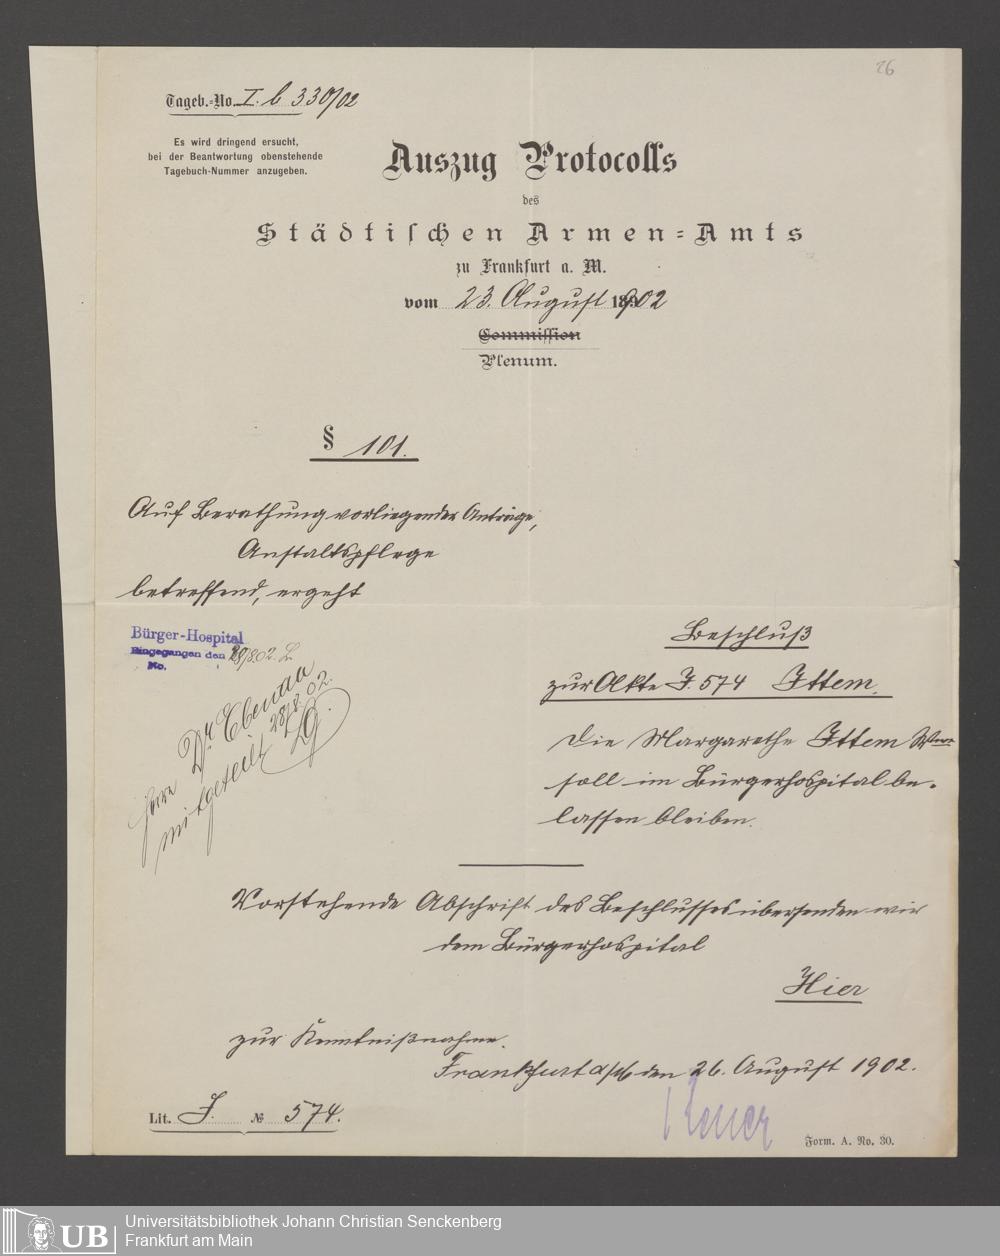 26
Tageb.-No. I. b 330/02
Es wird dringend ersucht,
bei der Beantwortung obenstehende
Tagebuch-Nummer anzugeben.
Auszug Protocolls
des
Städtischen Armen-Amts
zu Frankfurt a. M.
vom 23. August 1902
Commission
Plenum.
§ 101.
Auf Berathung vorliegender Anträge,
Anstaltspflege
betreffend, ergeht
Bürger-Hospital
Eingegangen den 28/8.02.
No.
Herrn Dr. Ebenau
mitgeteilt 28/8.02.
Beschluß
zur Akte J. 574 Ittem.
Die Margarethe Ittem Wwe
soll im Bürgerhospital be-
lassen bleiben.
Vorstehende Abschrift des Beschlusses übersenden wir
dem Bürgerhospital
Hier
zur Kenntnißnahme.
Frankfurt a/M den 26. August 1902.
Lit. J. No 574.
Form. A. No. 30.
UB
Universitätsbibliothek Johann Christian Senckenberg
Frankfurt am Main